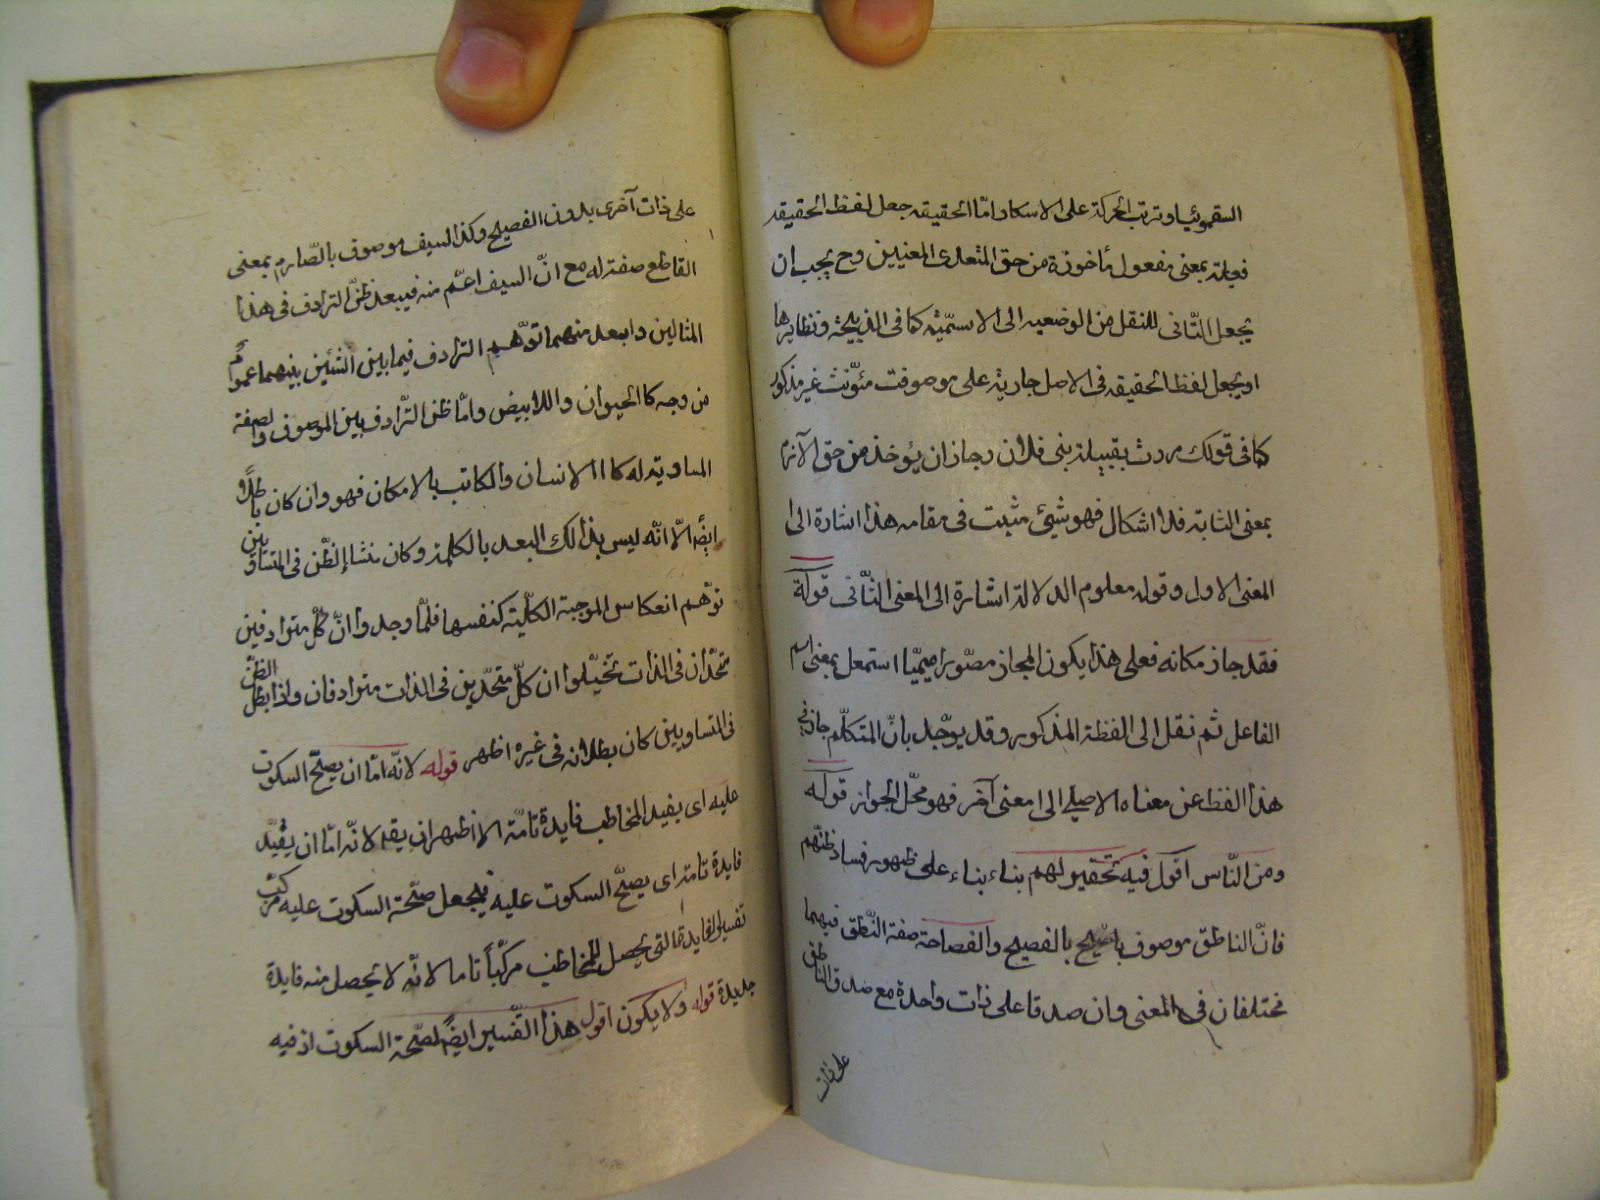 السقمونيا وترتب الحركة على الاسكار واما الحقيقة جعل لفظ الحقيقة
فعيلة بمعنى مفعول مأخوذة من حق المتعدى المعنيين وح يجب ان
يجعل التّانى للنقل من الوضعيه الى الاسمّية كما فى الذبيحة ونظايرها
او يجعل لفظ الحقيقه فى الاصل جارية على موصوفت مئوّنث غير مذكور
كما فى قولك مررت بقبيلة بنى فلان وجاز ان يؤخذ من حق الآزم
بمعنى الثابتة فلا اشكال فهو شيئ مثبت فى مقامه هذا اشارة الى
المعنى الاول وقوله معلوم الدلالة اشارة الى المعنى الثّانى قوله
فقد جاز مكانه فعلى هذا يكون المجاز مصدرا ميميّا استعمل بمعنى اسم
الفاعل ثم نقل الى الفظة المذكور وقد يوّجه بانّ المتكلّم جاز فى
هذا الفظ عن معناه الاصلى الى معنى آخر فهو محّل الجواز قوله
ومن النّاس اقول فيه تحقير لهم بناء بناء على ظهور فساد ظنّهم
فانّ الناطق موصوف بالفصيح والفصاحة صفة النّطق فيهما
مختلفان فى المعنى وان صدقا على ذات واحدة مع صدق الناطق
على ذات
على ذات آخرى بدون الفصيح وكذا السيف موصوف بالصّارم بمعنى
القاطع صفة له مع انّ السيف اعّم منه فيبعد ظنّ الترادف فى هذا
المثالين وابعد منهما توّهم الترادف فيما بين الشئين بينهما عموم
من وجه كالحيوان واللابيض وامّا ظن التّرادف بين الموصوف والصفة
المساوية له كا الانسان والكاتب بالامكان فهو وان كان باطلاً
ايضًا الّا انّه ليس بذالك البعد بالكلمة وكان منشاء الظّن فى المتساويين
توّهم انعكاس الموجبة الكليّة كنفسها فلمّا وجدوا انّ كلّ مترادفين
متحّدان فى الذات تخيّلوا ان كلّ متحّدين فى الذات مترادفان واذا بطل الظنّ
فى المتساويين كان بطلانه فى غيره اظهر قوله لانّه امّا ان يصلحّ السكوت
عليه اى يفيد المخاطب فايدة تامّة الاظهر ان يقد لانّه امّا ان يفيد
فايدة تامة اى يصلحّ السكوت عليه فيجعل صحّة السكوت عليه مركب
تفسير الفايدة التى يحصل للمخاطب مركّبًا تاما لانّه لا يحصل منه فايدة
جديدة قوله ولا يكون اقول هذا التفّسير ايضًا لصحّة السكوت اذ فيه